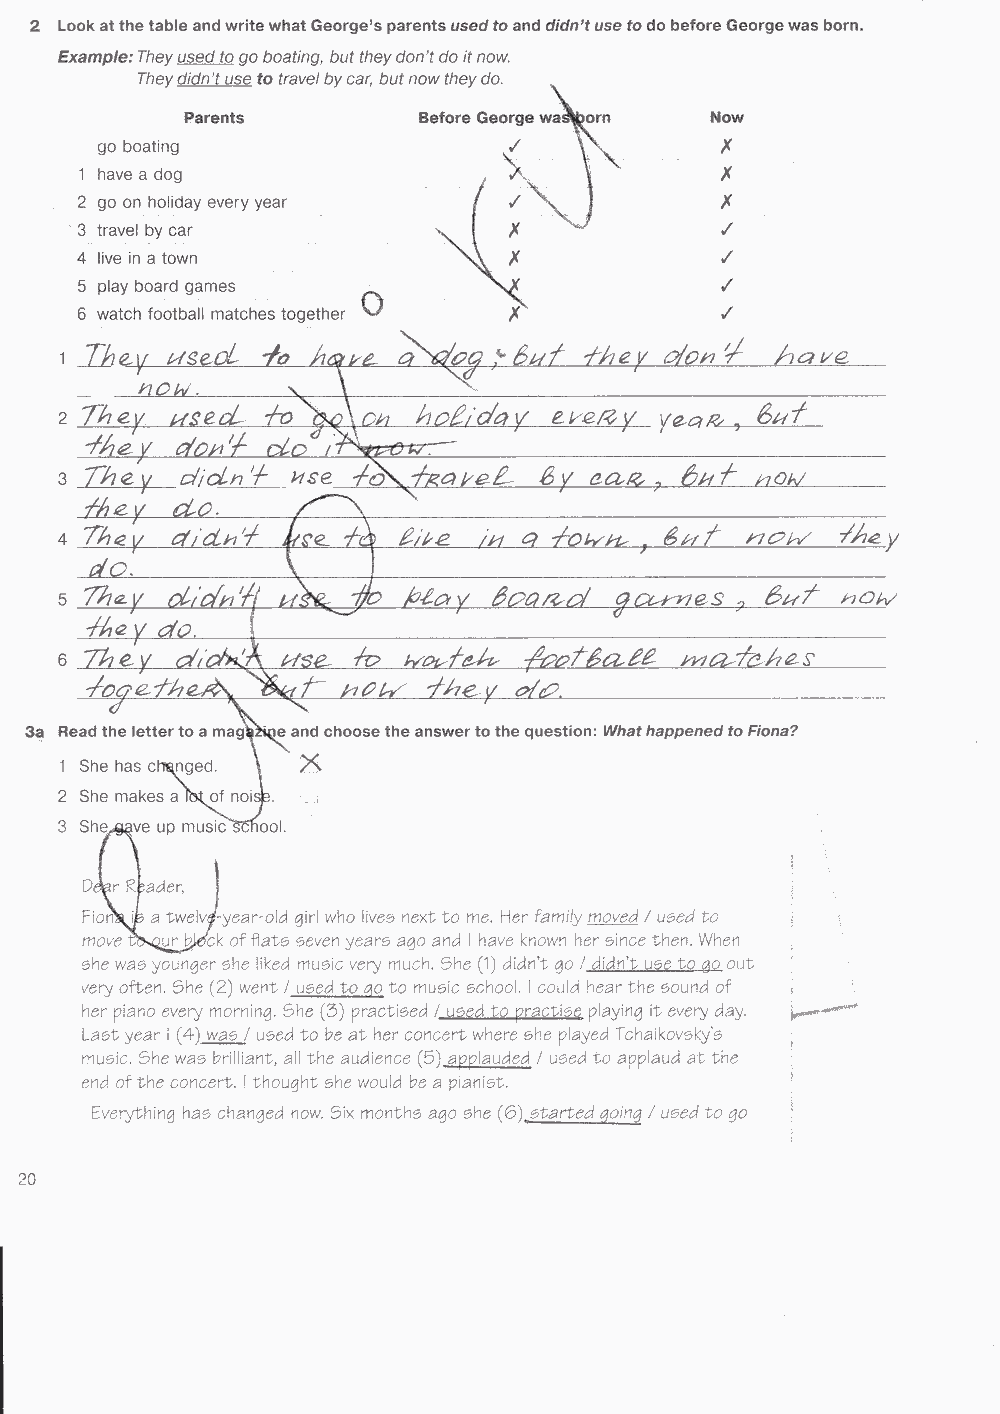 2 Look at the table and write what George's parents used to and didn't use to do before George was born.
Example: They used to go boating, but they don't do it now.
They didn't use to travel by car, but now they do.
Parents Before George was born Now
go boating ✓ ✗
1 have a dog ✓ ✗
2 go on holiday every year ✓ ✗
3 travel by car ✗ ✓
4 live in a town ✗ ✓
5 play board games ✗ ✓
6 watch football matches together ✗ ✓
1 They used to have a dog, but they don't have
now.
2 They used to go on holiday every year, but
they don't do it now.
3 They didn't use to travel by car, but now
they do.
4 They didn't use to live in a town, but now they
do.
5 They didn't use to play board games, but now
they do.
6 They didn't use to watch football matches
together, but now they do.
3a Read the letter to a magazine and choose the answer to the question: What happened to Fiona?
1 She has changed. ✗
2 She makes a lot of noise.
3 She gave up music school.
Dear Reader,
Fiona is a twelve-year-old girl who lives next to me. Her family moved / used to
move to our block of flats seven years ago and I have known her since then. When
she was younger she liked music very much. She (1) didn't go / didn't use to go out
very often. She (2) went / used to go to music school. I could hear the sound of
her piano every morning. She (3) practised / used to practise playing it every day.
Last year I (4) was / used to be at her concert where she played Tchaikovsky's
music. She was brilliant, all the audience (5) applauded / used to applaud at the
end of the concert. I thought she would be a pianist.
Everything has changed now. Six months ago she (6) started going / used to go
20